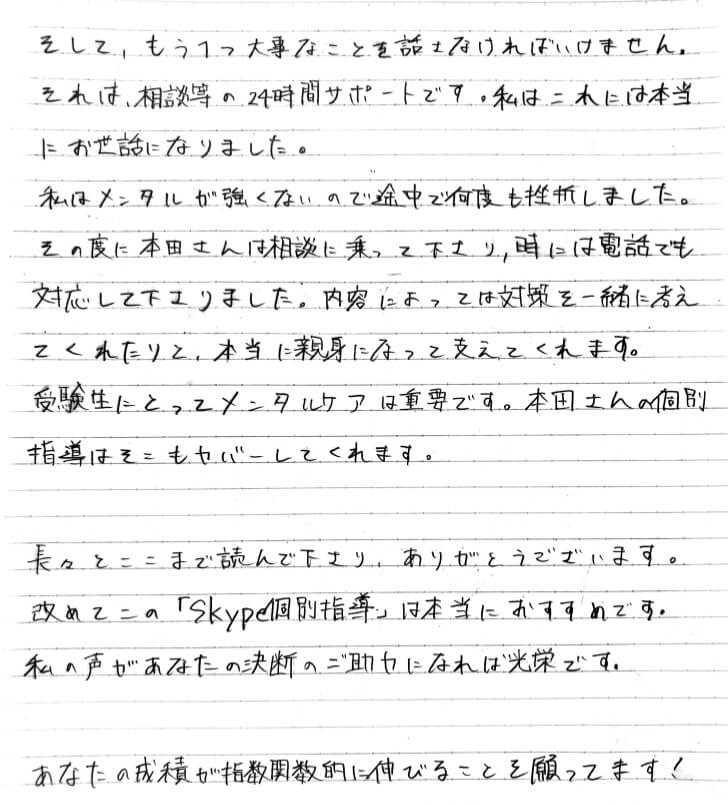 そして、もう1つ大事なことを話さなければいけません。
それは、相談等の24時間サポートです。私はこれには本当
にお世話になりました。
私はメンタルが強くないので途中で何度も挫折しました。
その度に本田さんは相談に乗って下さり,時には電話でも
対応して下さりました。内容によっては対策を一緒に考え
てくれたりと、本当に親身になって支えてくれます。
受験生にとってメンタルケアは重要です。本田さんの個別
指導はそこもカバーしてくれます。
長々とここまで読んで下さり、ありがとうございます。
改めてこの「Skype個別指導」は本当におすすめです。
私の声があなたの決断のご助力になれば光栄です。
あなたの成積が指数関数的に伸びることを願ってます!